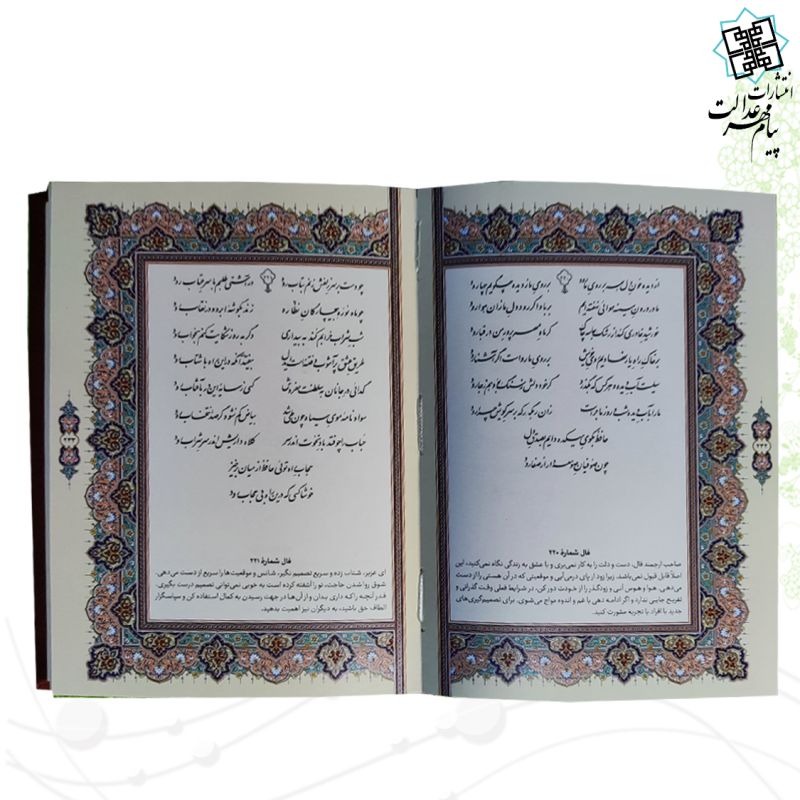 انتشارات
پیام مهر عدالت
۲۲۰
از دیده خون دل همه بر روی ما رود بر روی ما ز دیده چگویم چها رود
ما در درون سینه هوائی نهفته‌ایم بر باد اگر رود دل ما زان هوا رود
خورشید خاوری کند از رشک جامه چاک گر ماه مهر پرور من در قبا رود
بر خاک راه یار نهادیم روی خویش بر روی ما رواست اگر آشنا رود
سیلست آب دیده و هر کس که بگذرد گر خود دلش ز سنگ بود هم ز جا رود
ما را به آب دیده شب و روز ماجراست زان رهگذر که بر سر کویش چرا رود
حافظ بکوی میکده دایم بصدق دل
چون صوفیان صومعه دار از صفا رود
فال شمارهٔ ۲۲۰
صاحب ارجمند فال، دست و دلت را به کار نمی‌بری و با عشق به زندگی نگاه نمی‌کنید، این
اصلاً قابل قبول نمی‌باشد. زیرا زود از پای درمی‌آیی و موقعیتی که در آن هستی را از دست
می‌دهی. هوا و هوس آنی و زودگذر را از خودت دور کن، در شرایط فعلی وقت گذرانی و
تفریح جایی ندارد و اگر ادامه دهی با غم و اندوه مواج می‌شوی. برای تصمیم‌گیری‌های
جدید با افراد با تجربه مشورت کنید.
۲۲۱
چو دست بر سر زلفش زنم بتاب رود ور آشتی طلبم با سر عتاب رود
چو ماه نو ره بیچارگان نظاره زند بگوشه ابرو و در نقاب رود
شب شراب خرابم کند به بیداری وگر به روز شکایت کنم بخواب رود
طریق عشق پر آشوب و فتنه است ای دل بیفتد آنکه در این راه با شتاب رود
گدائی در جانان به سلطنت مفروش کسی ز سایه این در به آفتاب رود
سواد نامه موی سیاه چون طی شد بیاض کم نشود گر صد انتخاب رود
حباب را چو فتد باد نخوت اندر سر کلاه داریش اندر سر شراب رود
حجاب راه توئی حافظ از میان برخیز
خوشا کسی که درین راه بی حجاب رود
فال شمارهٔ ۲۲۱
ای عزیز، شتاب زده و سریع تصمیم نگیر، شانس و موقعیت‌ها را سریع از دست می‌دهی.
شوق روا شدن حاجت، تو را آشفته کرده است به خوبی نمی‌توانی تصمیم درست بگیری.
قدر آنچه را که داری بدان و از آن‌ها در جهت رسیدن به کمال استفاده کن و سپاسگزار
الطاف حق باشید، به دیگران نیز اهمیت بدهید.